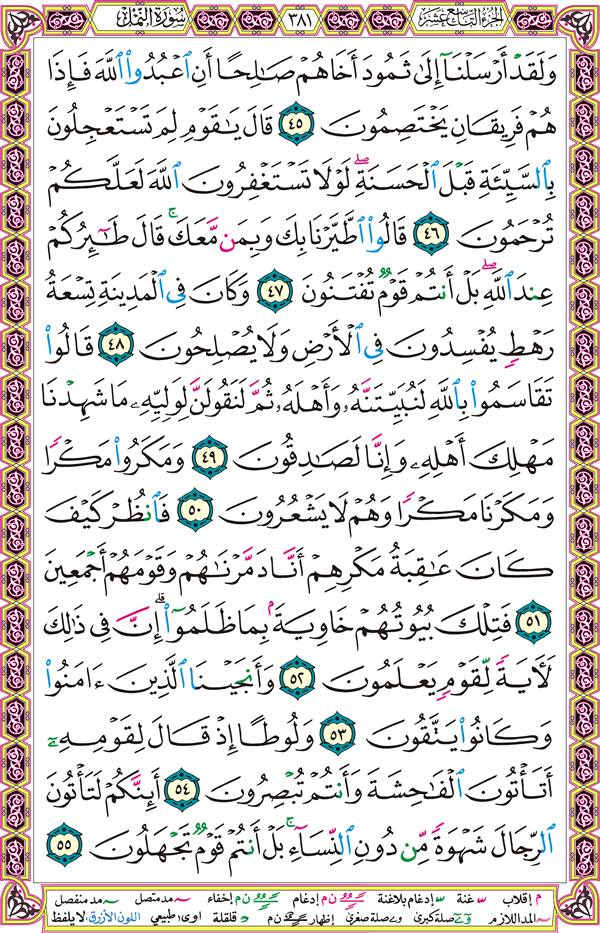 الجزء التاسع عشر ٣٨١ سورة النمل
وَلَقَدْ أَرْسَلْنَآ إِلَىٰ ثَمُودَ أَخَاهُمْ صَٰلِحًا أَنِ ٱعْبُدُوا۟ ٱللَّهَ فَإِذَا
هُمْ فَرِيقَانِ يَخْتَصِمُونَ ٤٥ قَالَ يَٰقَوْمِ لِمَ تَسْتَعْجِلُونَ
بِٱلسَّيِّئَةِ قَبْلَ ٱلْحَسَنَةِ ۖ لَوْلَا تَسْتَغْفِرُونَ ٱللَّهَ لَعَلَّكُمْ
تُرْحَمُونَ ٤٦ قَالُوا۟ ٱطَّيَّرْنَا بِكَ وَبِمَن مَّعَكَ ۚ قَالَ طَٰٓئِرُكُمْ
عِندَ ٱللَّهِ ۖ بَلْ أَنتُمْ قَوْمٌ تُفْتَنُونَ ٤٧ وَكَانَ فِى ٱلْمَدِينَةِ تِسْعَةُ
رَهْطٍ يُفْسِدُونَ فِى ٱلْأَرْضِ وَلَا يُصْلِحُونَ ٤٨ قَالُوا۟
تَقَاسَمُوا۟ بِٱللَّهِ لَنُبَيِّتَنَّهُۥ وَأَهْلَهُۥ ثُمَّ لَنَقُولَنَّ لِوَلِيِّهِۦ مَا شَهِدْنَا
مَهْلِكَ أَهْلِهِۦ وَإِنَّا لَصَٰدِقُونَ ٤٩ وَمَكَرُوا۟ مَكْرًا
وَمَكَرْنَا مَكْرًا وَهُمْ لَا يَشْعُرُونَ ٥٠ فَٱنظُرْ كَيْفَ
كَانَ عَٰقِبَةُ مَكْرِهِمْ أَنَّا دَمَّرْنَٰهُمْ وَقَوْمَهُمْ أَجْمَعِينَ
٥١ فَتِلْكَ بُيُوتُهُمْ خَاوِيَةًۢ بِمَا ظَلَمُوٓا۟ ۗ إِنَّ فِى ذَٰلِكَ
لَءَايَةً لِّقَوْمٍ يَعْلَمُونَ ٥٢ وَأَنجَيْنَا ٱلَّذِينَ ءَامَنُوا۟
وَكَانُوا۟ يَتَّقُونَ ٥٣ وَلُوطًا إِذْ قَالَ لِقَوْمِهِۦٓ
أَتَأْتُونَ ٱلْفَٰحِشَةَ وَأَنتُمْ تُبْصِرُونَ ٥٤ أَئِنَّكُمْ لَتَأْتُونَ
ٱلرِّجَالَ شَهْوَةً مِّن دُونِ ٱلنِّسَآءِ ۚ بَلْ أَنتُمْ قَوْمٌ تَجْهَلُونَ ٥٥
م إقلاب غنة إدغام بلاغنة ن م إدغام إخفاء مد متصل مد منفصل
المد اللازم صلة كبرى صلة صغرى إظهار ن م قلقلة اوى طبيعي اللون الأزرق لا يلفظ